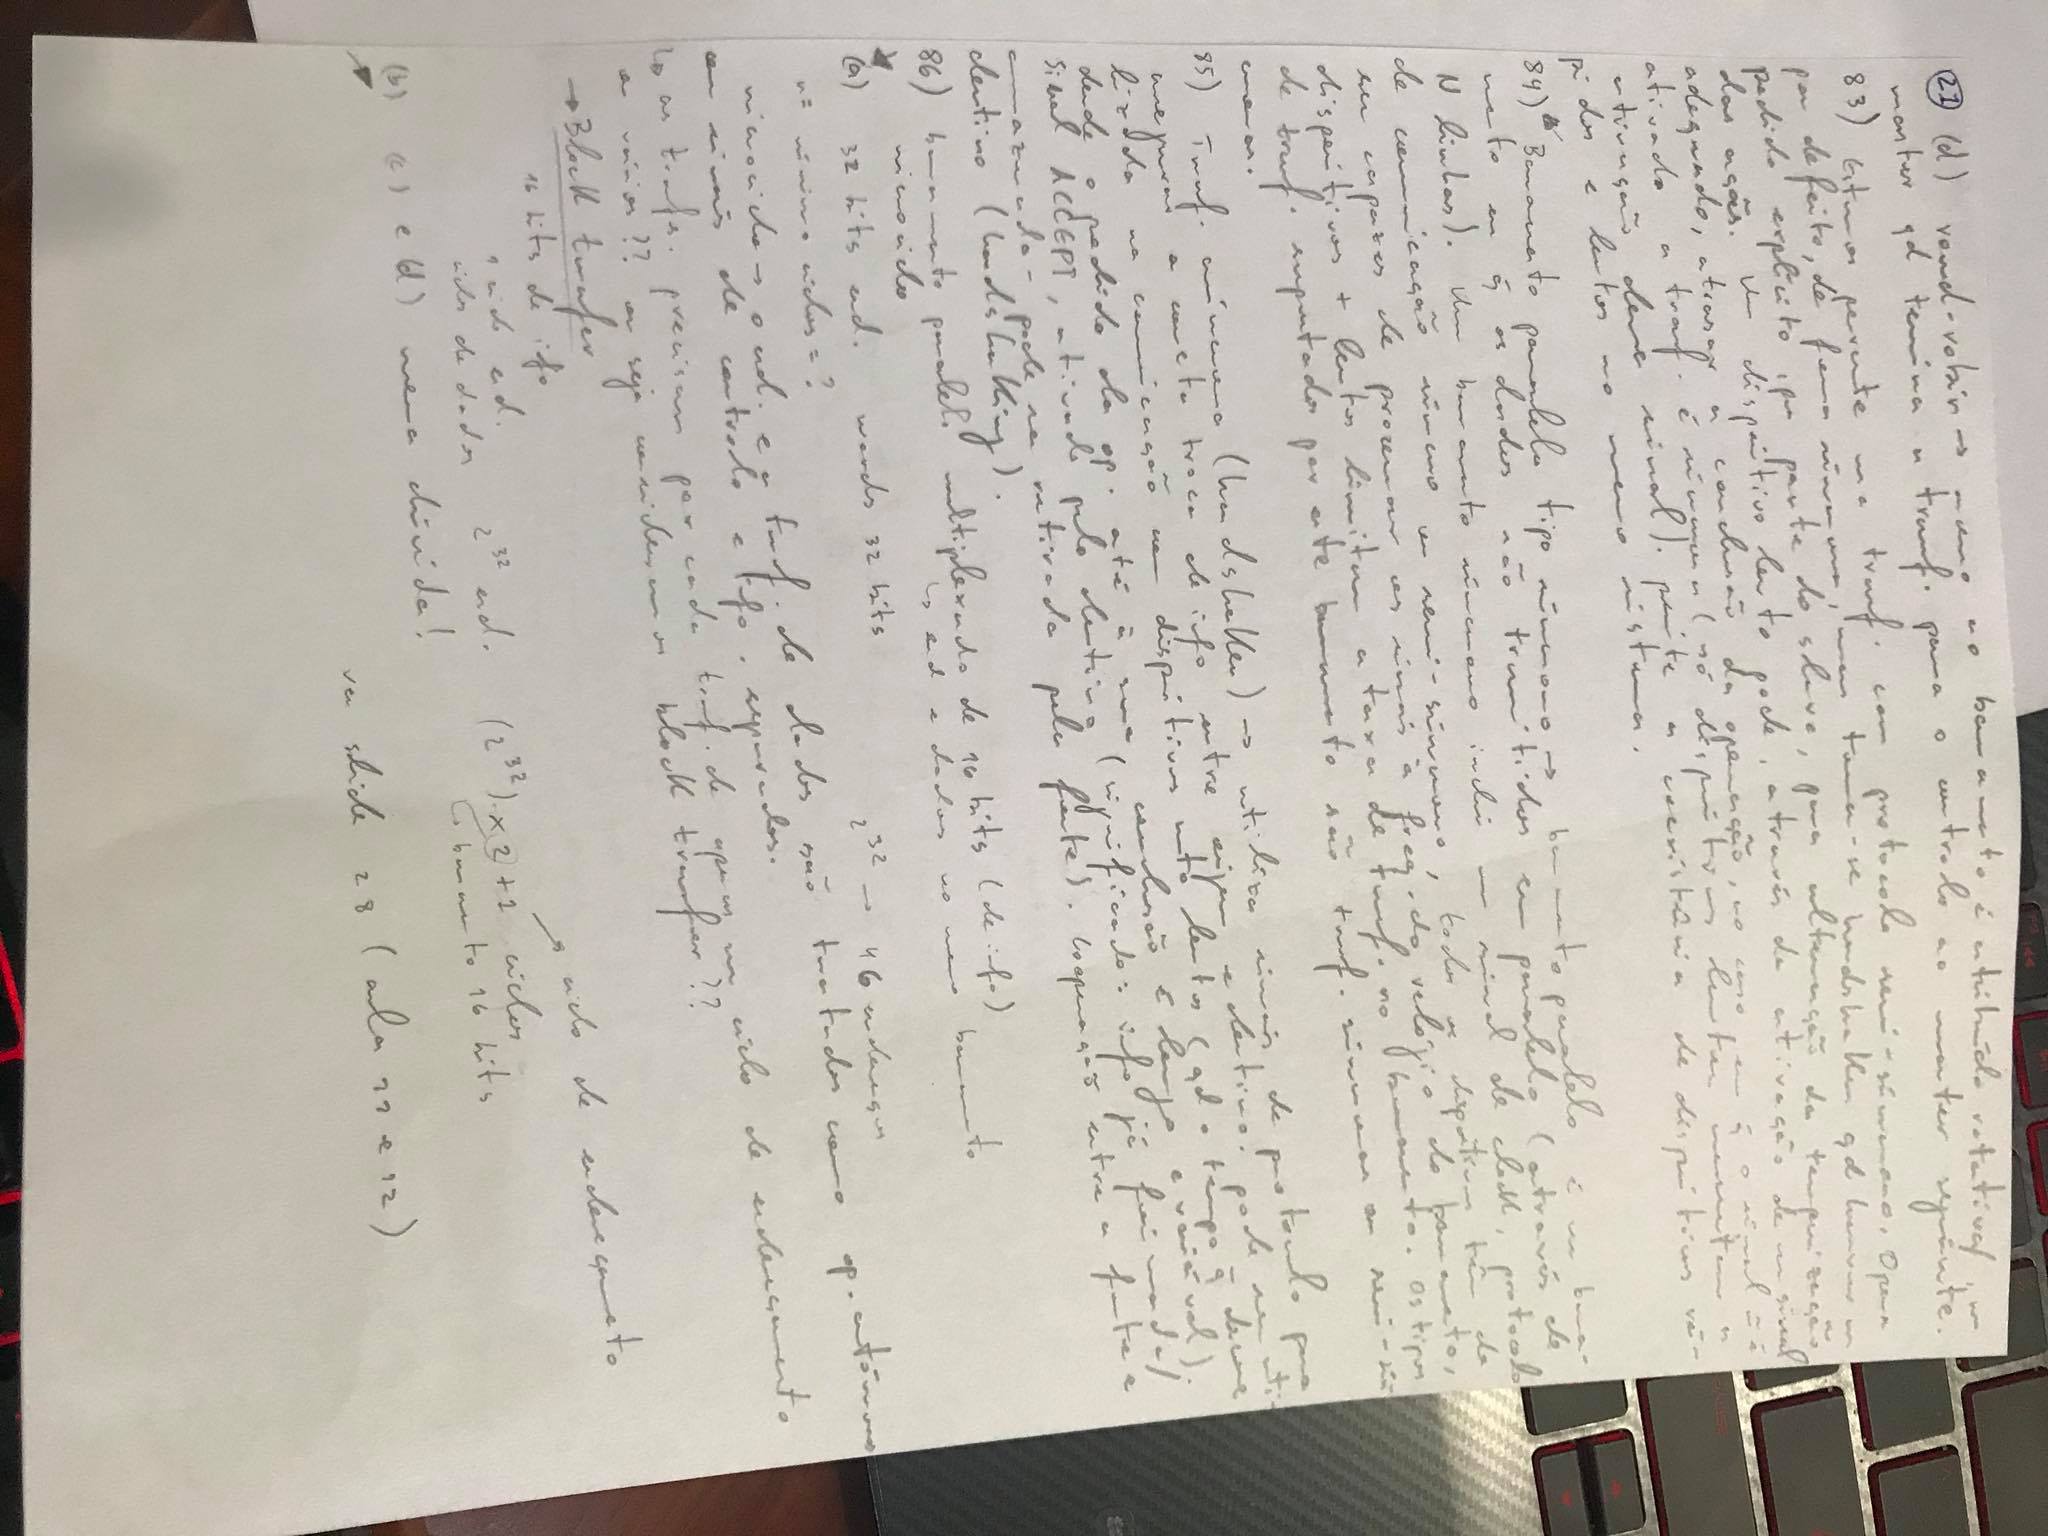 21 (d) round-robin → acesso ao barramento é atribuído rotativa/, um
master qd termina a transf. passa o controlo ao master seguinte.
83) Estamos perante uma transf. com protocolo semi-síncrono. Opera
por defeito, de forma síncrona, mas torna-se handshaken qd houver um
pedido explícito, por parte do slave, para alteração da temporização
das ações. Um dispositivo lento pode, através da ativação de um sinal
adequado, atrasar a conclusão da operação, no caso em q̃ o sinal ñ é
ativado a transf. é síncrona (só dispositivos lentos necessitam a
ativação desse sinal). permite a coexistência de dispositivos rá-
pidos e lentos no mesmo sistema.
84) Barramento paralelo tipo síncrono → barramento paralelo é um barra-
mento em q̃ os dados são transmitidos em paralelo (através de
N linhas). Um barramento síncrono inclui um sinal de clock, protocolo
de comunicação síncrono ou semi-síncrono, todos os dispositivos têm de
ser capazes de processar os sinais à freq. do relógio do barramento,
dispositivos + lentos limitam a taxa de transf. no barramento. Os tipos
de transf. suportados por este barramento são transf. síncronas ou semi-sín
cronas.
85) Transf. assíncrona (handshaken) → utiliza sinais de protocolo para
assegurar a correta troca de info entre origem e destino. pode ser uti-
lizada na comunicação com dispositivos mto lentos (qd o tempo q̃ decorre
desde o pedido da op. até à sua conclusão é longo e variável).
Sinal ACCEPT, ativado pelo destino (significado: info já foi
armazenada - pode ser retirada pela fonte). Cooperação entre a fonte e
destino (handshaking).
86) barramento paralelo multiplexado de 16 bits (de info)
↳ end e dados no mesmo barramento
microciclo
(a) 32 bits end. words 32 bits 2^32 → 4G endereços
n= número ciclos = ?
microciclo → o end. e a transf. de dados são tratados como op. autónomas
com sinais de controlo e info. separados.
↳ as transfs. precisam por cada transf. de apenas um ciclo de endereçamento
ou vários?? ou seja consideramos block transfer??
→ Block transfer
↗ ciclo de endereçamento
16 bits de info
1 ciclo end. (2^32) × 2 + 1 ciclos
ciclos de dados 2^32 end. ↳ barramento 16 bits
(b) (c) e (d) mesma dúvida!
ver slide 28 (aula 11 e 12)